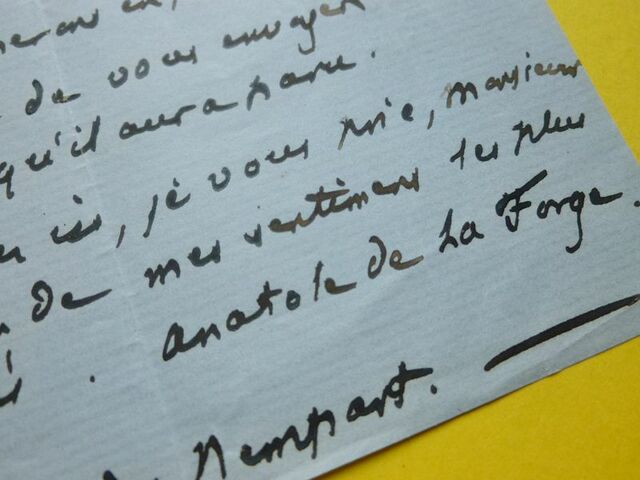 de vous envoyer
qu'il aura paru.
ici, je vous prie, Monsieur
de mes sentimens les plus
. Anatole de La Forge.
Rempart.